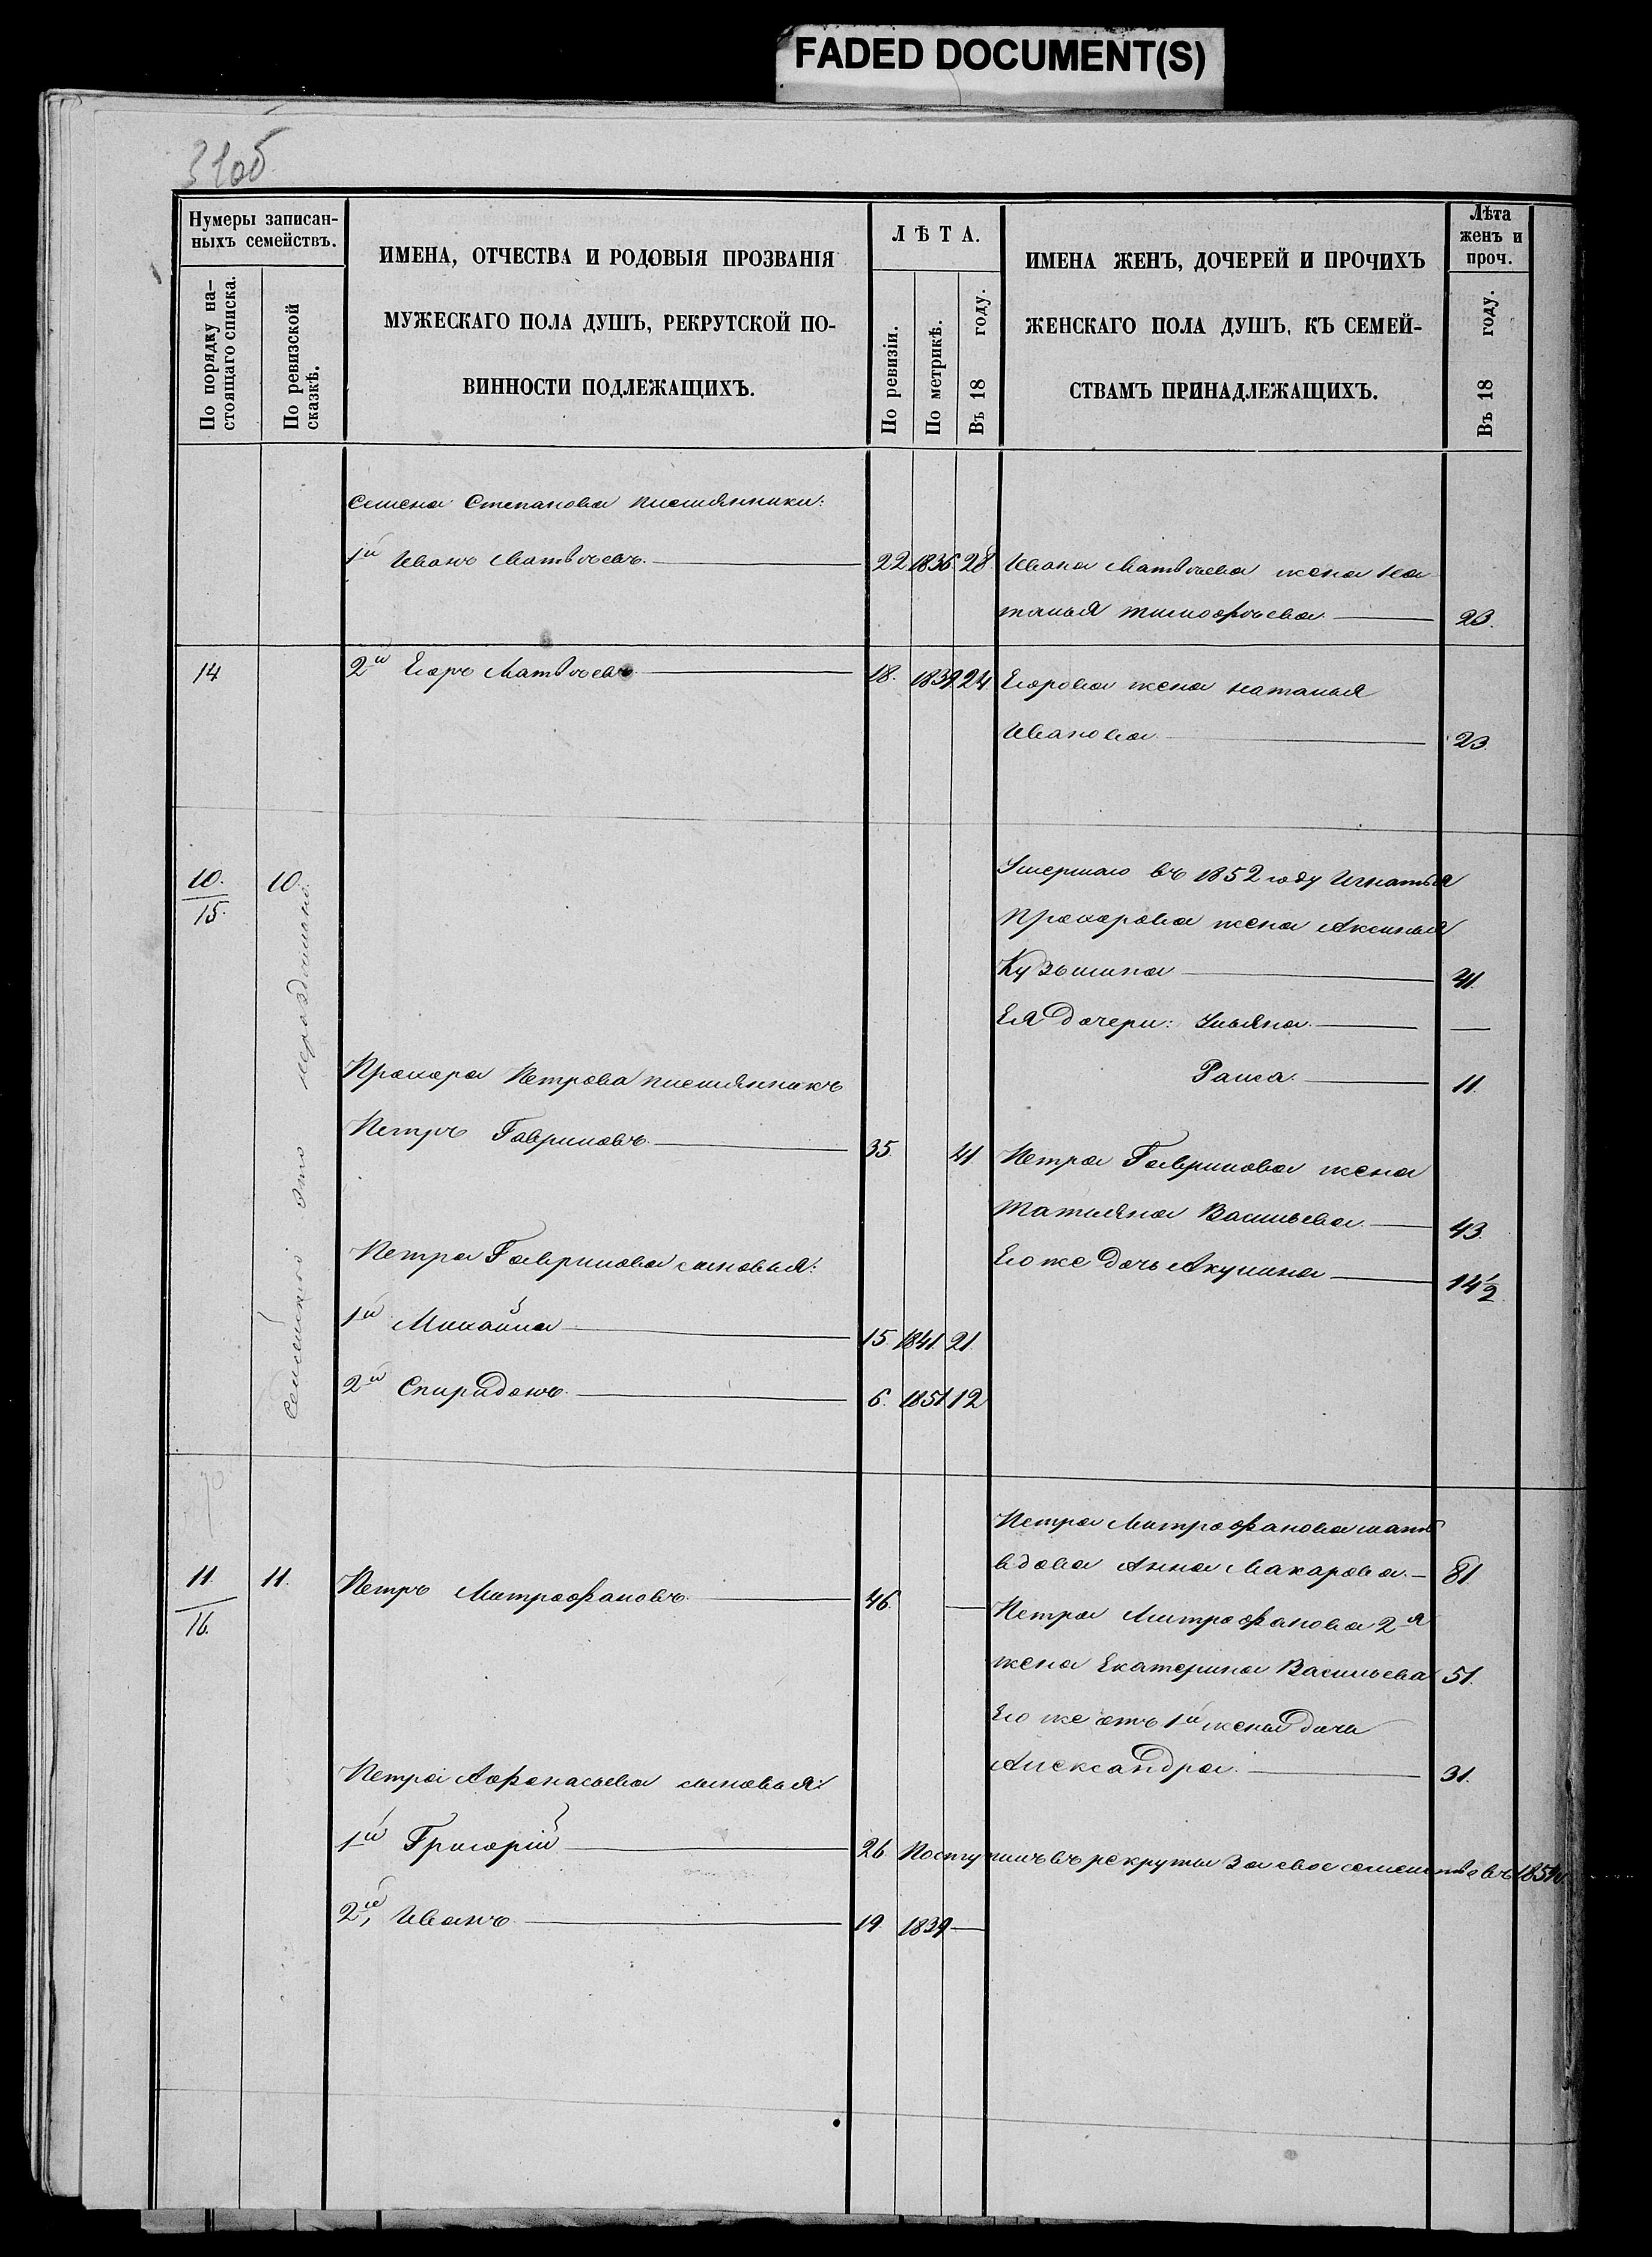 FADED DOCUMENT(S)
31об
Нумеры записан-
ныхъ семействъ.
По порядку на-
стоящаго списка.
По ревизской
сказкѣ.
ИМЕНА, ОТЧЕСТВА И РОДОВЫЯ ПРОЗВАНІЯ
МУЖЕСКАГО ПОЛА ДУШЪ, РЕКРУТСКОЙ ПО-
ВИННОСТИ ПОДЛЕЖАЩИХЪ.
ЛѢТА.
По ревизіи.
По метрикѣ.
Въ 18 году.
ИМЕНА ЖЕНЪ, ДОЧЕРЕЙ И ПРОЧИХЪ
ЖЕНСКАГО ПОЛА ДУШЪ, КЪ СЕМЕЙ-
СТВАМЪ ПРИНАДЛЕЖАЩИХЪ.
Лѣта
женъ и
проч.
Въ 18 году.
Семена Степанова племянники:
1й Иванъ Матвѣевъ 22 1836 28 Ивана Матвѣева жена На
талья Тимофѣева 23.
14 2й Егоръ Матвѣевъ 18. 1839 24 Егорова жена Наталья
Иванова 23.
10. 10. Умершаго въ 1852 году Игнатья
15. Прохорова жена Аксинья
Кузьмина 41.
Ея дочери: Ульяна —
Раиса 11.
Семейство это нераздѣльно.
Прохора Петрова племянникъ
Петръ Гавриловъ 35. 41. Петра Гаврилова жена
Татьяна Васильева 43.
Его же дочь Акулина 14½
Петра Гаврилова сыновья:
1й Михайла 15. 1841. 21.
2й Спиридонъ 6. 1851 12
Петра Митрофанова мать
вдова Анна Макарова 81.
11. 11. Петръ Митрофановъ 46. —
16. Петра Митрофанова 2я
жена Екатерина Васильева 51.
Его же отъ 1й жены дочь
Александра 31.
Петра Афонасьева сыновья:
1й Григорій 26 Поступилъ въ рекруты за свое семейство въ
2й, Иванъ 19. 1839 —